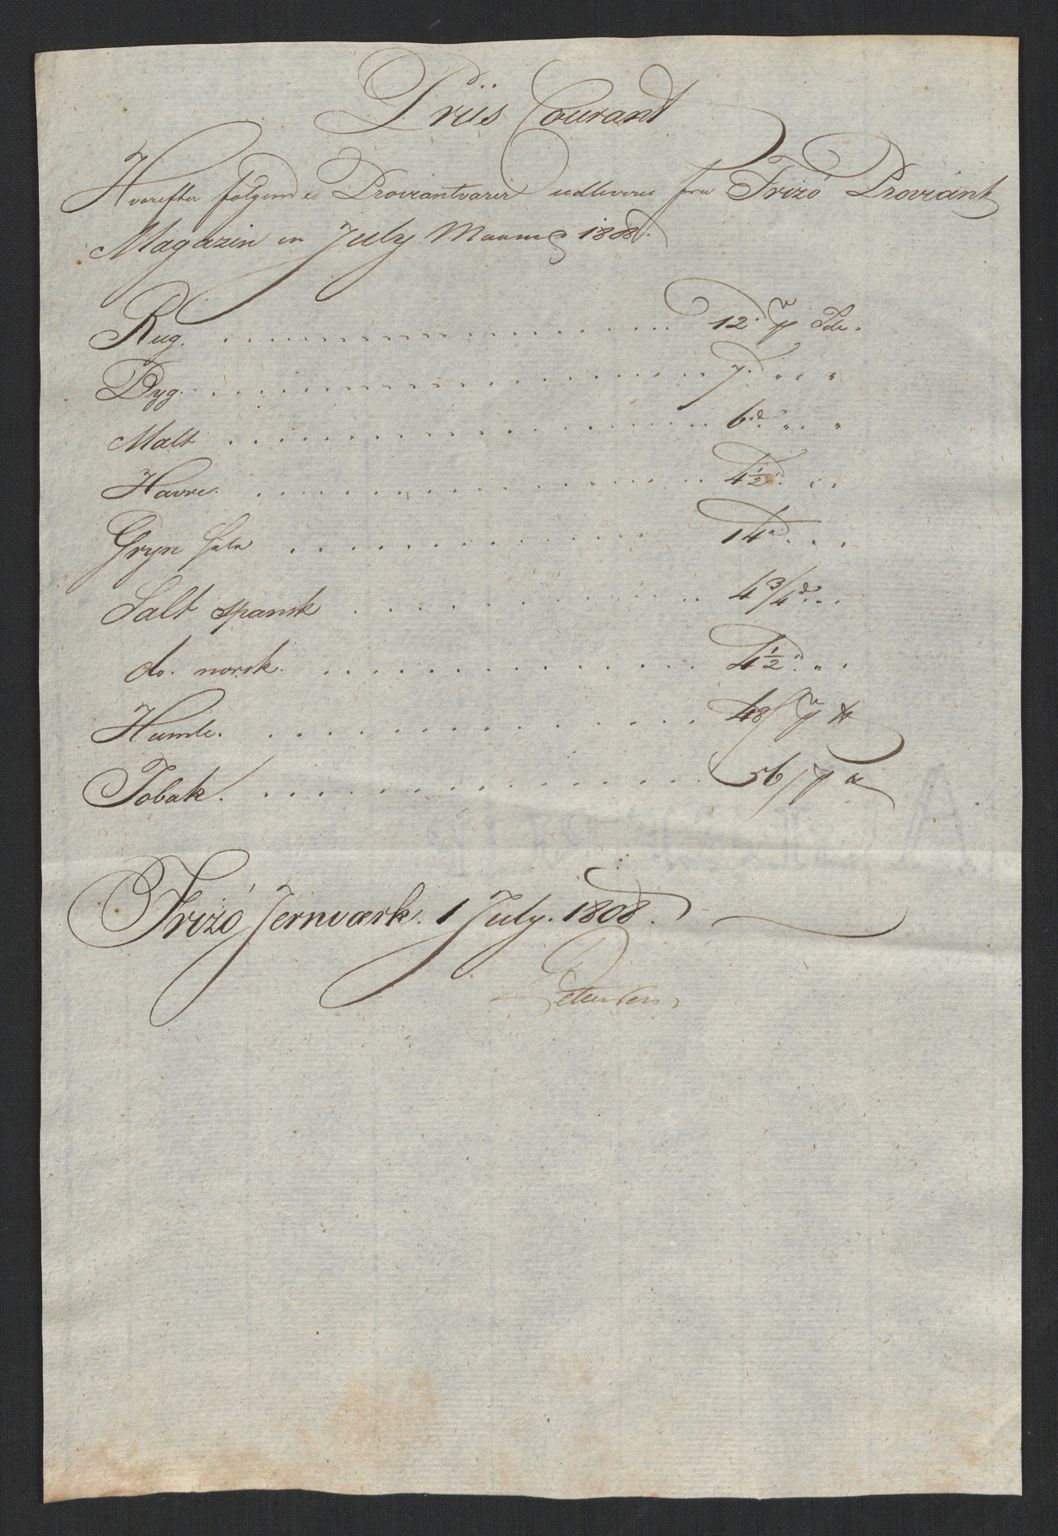 Priis Courant
Hvorefter følgende Proviantvarer udleveres fra Frizö Proviant
Magazin en July Maaned 1808.
Rug. . . . . . . . . . . . . . . . . . . . 12 rd
Byg. . . . . . . . . . . . . . . . . . . . 7 rd " "
Malt . . . . . . . . . . . . . . . . . . . . 6 rd " "
Havre. . . . . . . . . . . . . . . . . . . . 4½ rd " "
Gryn hele . . . . . . . . . . . . . . . 14 rd " "
Salt spansk . . . . . . . . . . . . . . 4 3/4 rd " "
do. norsk. . . . . . . . . . . . . . . 4½ rd " "
Humle. . . . . . . . . . . . . . . . . 48/
Tobak. . . . . . . . . . . . . . . . . 56/
Frizö Jernværk. 1 July. 1808.